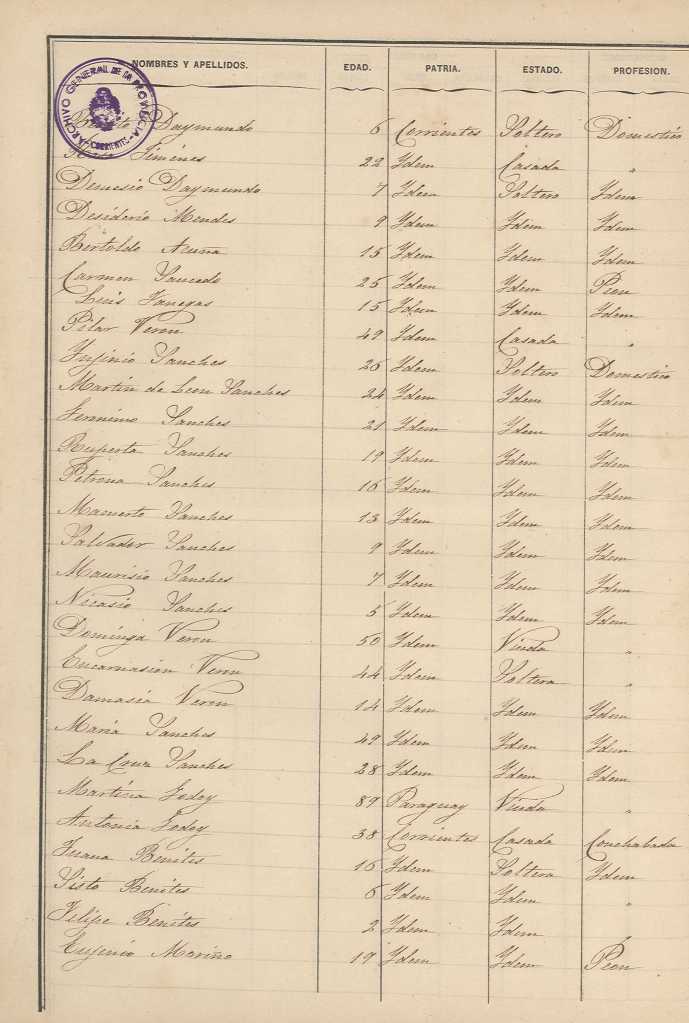 NOMBRES Y APELLIDOS. EDAD. PATRIA. ESTADO. PROFESION.
ARCHIVO GENERAL DE LA PROVINCIA CORRIENTES
Daymundo 6 Corrientes Soltero Domestico
Rosa Simines 22 Ydem Casada "
Demesio Daymundo 7 Ydem Soltero Ydem
Desiderio Mendes 9 Ydem Ydem Ydem
Bertoldo Acuña 15 Ydem Ydem Ydem
Carmen Saucedo 25 Ydem Ydem Peon
Luis Fanegas 15 Ydem Ydem Ydem
Pilar Veron 49 Ydem Casada "
Yujinio Sanches 26 Ydem Soltero Domestico
Martin de Leon Sanches 24 Ydem Ydem Ydem
Jeronimo Sanches 21 Ydem Ydem Ydem
Ruperta Sanches 19 Ydem Ydem Ydem
Petrona Sanches 16 Ydem Ydem Ydem
Mamerto Sanches 13 Ydem Ydem Ydem
Salvador Sanches 9 Ydem Ydem Ydem
Maurisio Sanches 7 Ydem Ydem Ydem
Nicasio Sanches 5 Ydem Ydem Ydem
Dominga Veron 50 Ydem Viuda "
Encarnasion Veron 44 Ydem Soltera "
Damasia Veron 14 Ydem Ydem Ydem
Maria Sanches 49 Ydem Ydem Ydem
La Cruz Sanches 28 Ydem Ydem Ydem
Martina Godoy 89 Paraguay Viuda "
Antonia Godoy 38 Corrientes Casada Conchabada
Juana Benites 16 Ydem Soltera Ydem
Sisto Benites 6 Ydem Ydem "
Filipe Benites 2 Ydem Ydem "
Eujinio Moriño 19 Ydem Ydem Peon